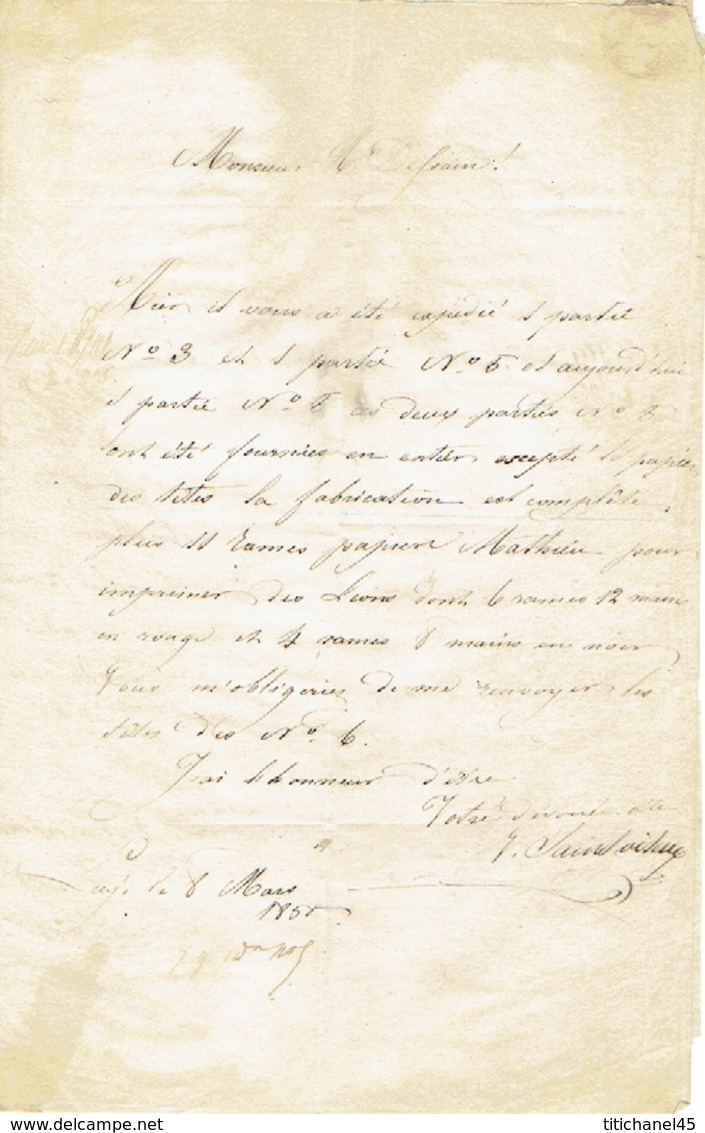 Monsieur
Hier il vous a été expédié 1 partie
N° 3 et 1 partie N° 5 et aujourd'hui
1 partie N° 5 ces deux parties N° 5
ont été fournies en entier excepté le papier
des têtes la fabrication est complète,
plus 11 rames papier Mathieu pour
imprimer des Lions dont 6 rames 12 mains
en rouge et 4 rames 8 mains en noir
Vous m'obligerier de me renvoyer les
têtes des N° 6.
J'ai l'honneur d'être
Votre dévouée
le 8 Mars
www.delcampe.net
titichanel45